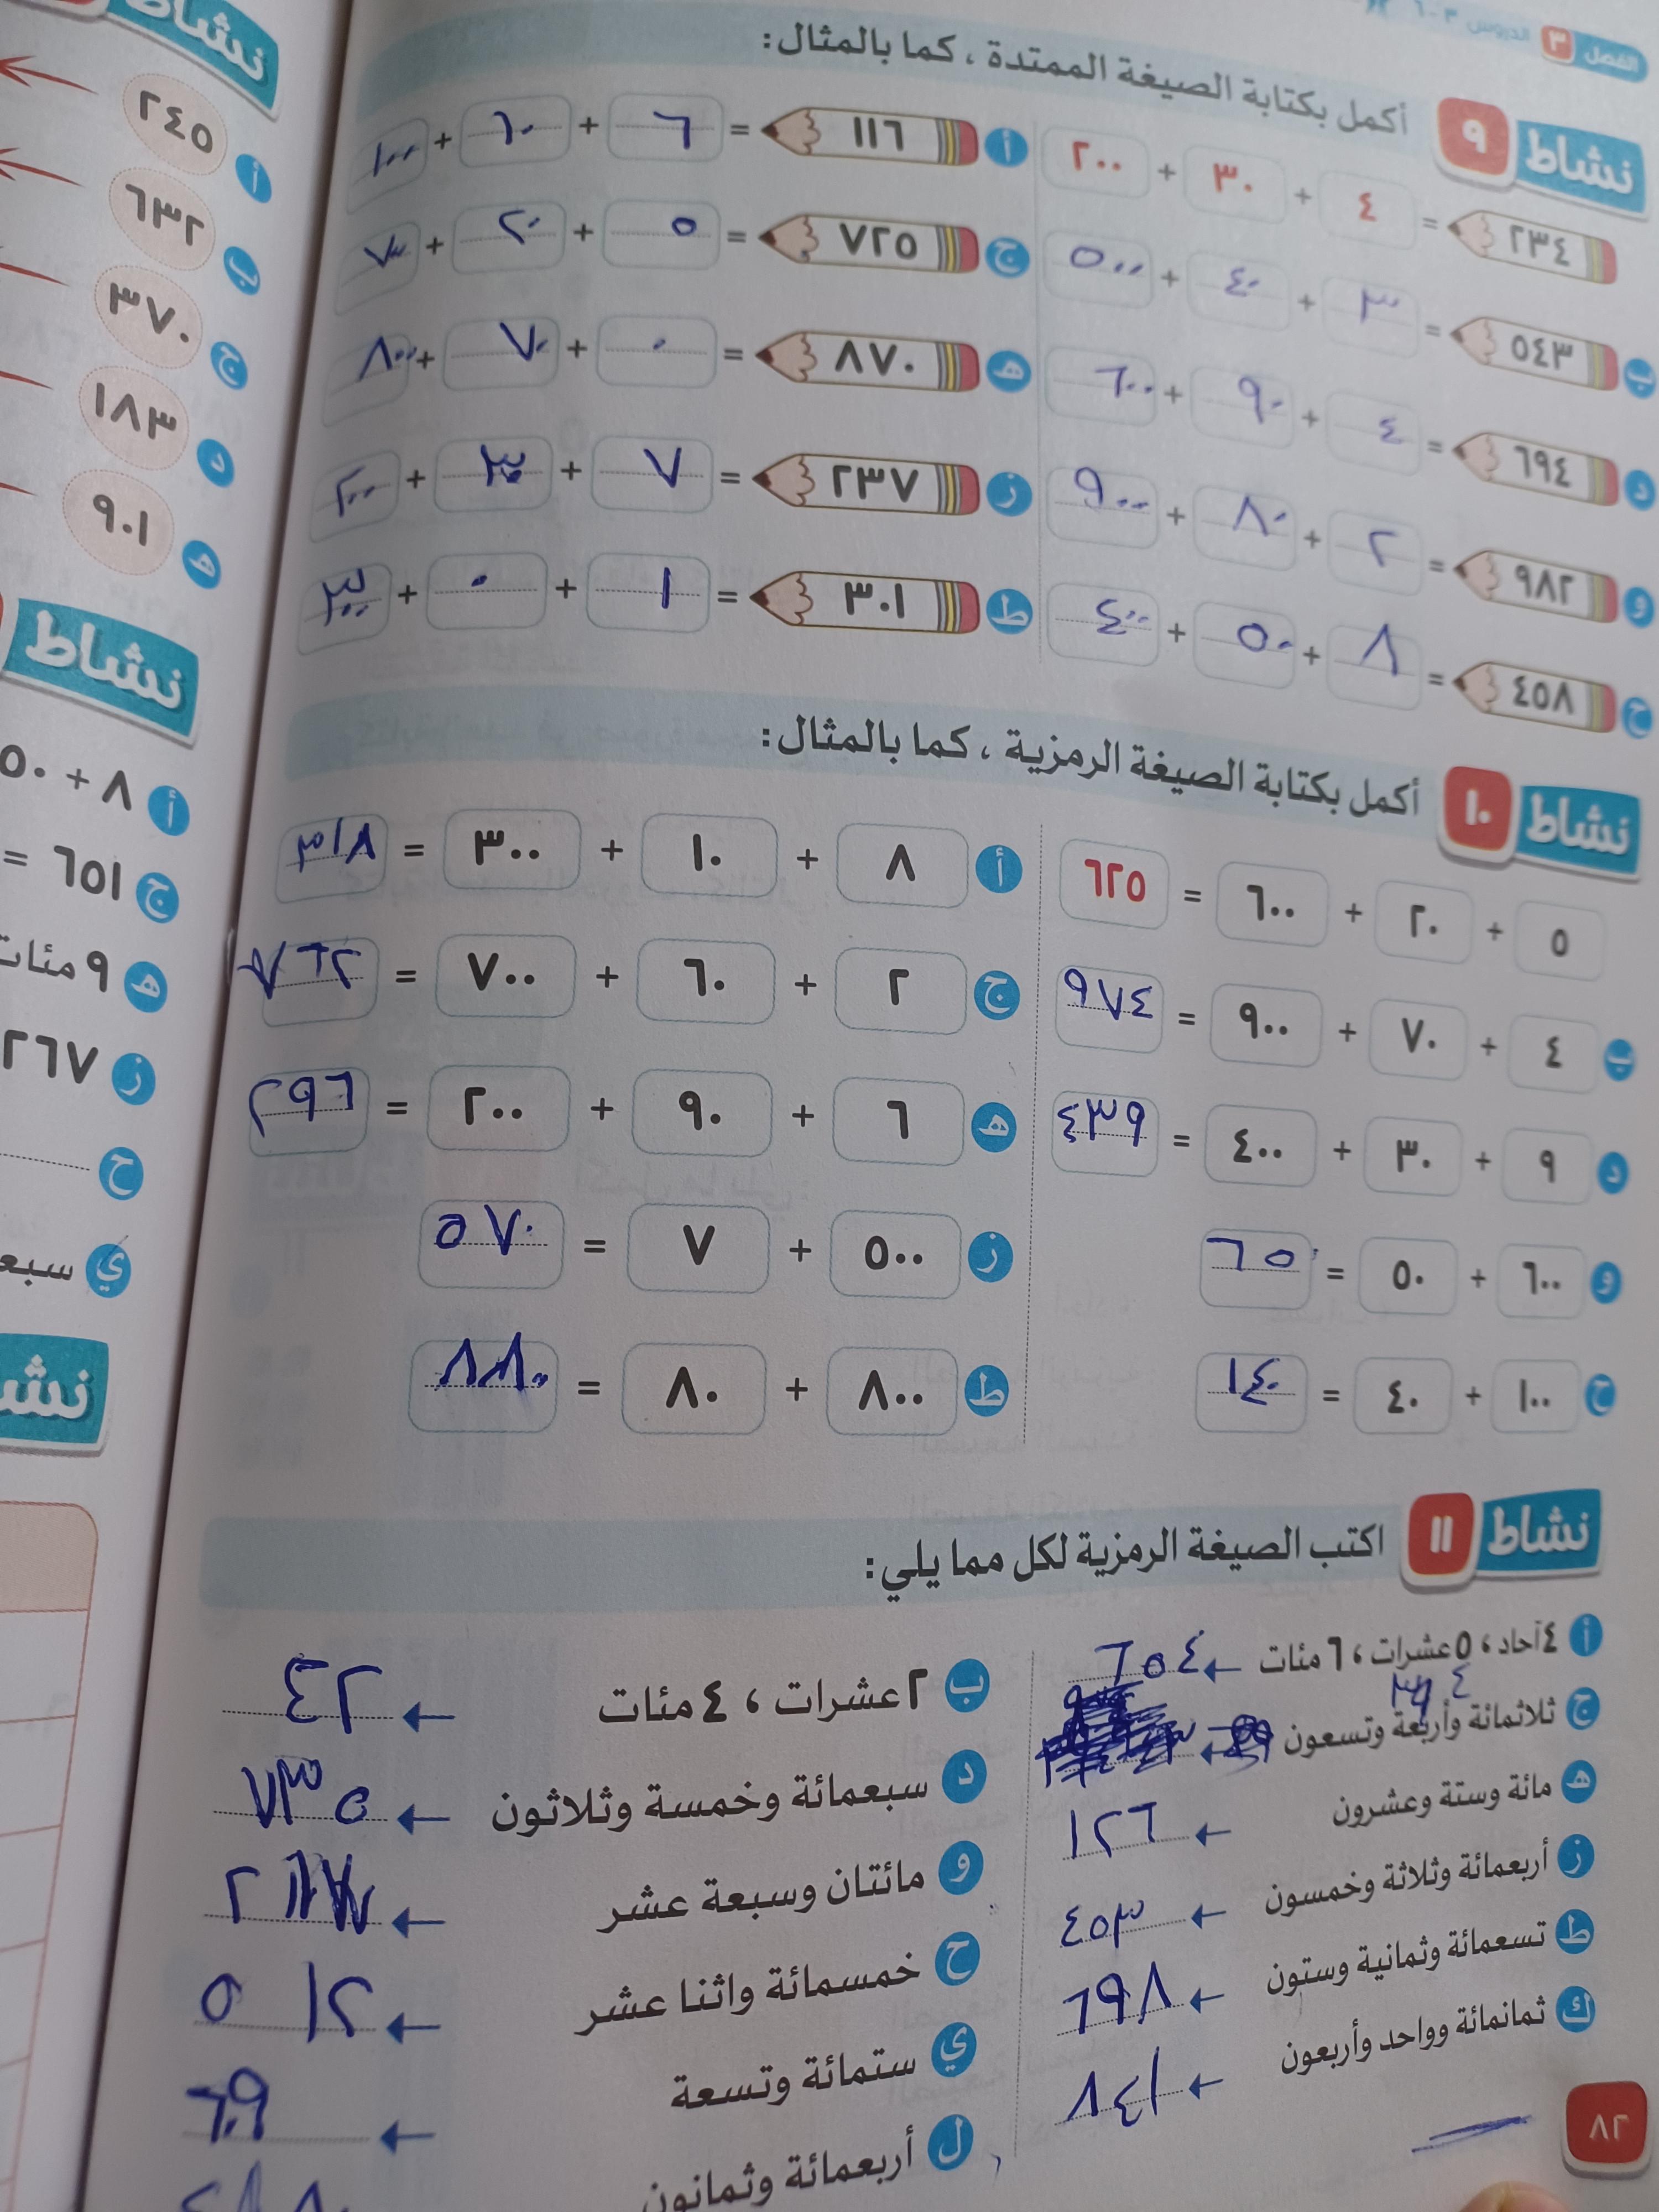 الفصل ٣ الدروس ٣-٦
نشاط ٩ أكمل بكتابة الصيغة الممتدة ، كما بالمثال:
٢٣٤ = ٤ + ٣٠ + ٢٠٠
أ ١١٦ = ٦ + ٦٠ + ١٠٠
ب ٥٤٣ = ٣ + ٤٠ + ٥٠٠
ج ٧٢٥ = ٥ + ٢٠ +
د ٦٩٤ = ٤ + ٩٠ + ٦٠٠
ه ٨٧٠ = ٠ + ٧٠ + ٨٠٠
و ٩٨٢ = ٢ + ٨٠ + ٩٠٠
ز ٢٣٧ = ٧ + ٣٠ + ٢٠٠
ح ٤٥٨ = ٨ + ٥٠ + ٤٠٠
ط ٣٠١ = ١ + ٠ + ٣٠٠
نشاط ١٠ أكمل بكتابة الصيغة الرمزية ، كما بالمثال:
٥ + ٢٠ + ٦٠٠ = ٦٢٥
أ ٨ + ١٠ + ٣٠٠ = ٣١٨
ب ٤ + ٧٠ + ٩٠٠ = ٩٧٤
ج ٢ + ٦٠ + ٧٠٠ = ٧٦٢
د ٩ + ٣٠ + ٤٠٠ = ٤٣٩
ه ٦ + ٩٠ + ٢٠٠ = ٢٩٦
و ٦٠٠ + ٥٠ = ٦٥٠
ز ٥٠٠ + ٧ = ٥٧٠
ح ١٠٠ + ٤٠ = ١٤٠
ط ٨٠٠ + ٨٠ = ٨٨٠
نشاط ١١ اكتب الصيغة الرمزية لكل مما يلي:
أ ٤ آحاد ، ٥ عشرات ، ٦ مئات ← ٦٥٤
ب ٢ عشرات ، ٤ مئات ← ٤٢
ج ثلاثمائة وأربعة وتسعون ← ٣٩٤
د سبعمائة وخمسة وثلاثون ← ٧٣٥
ه مائة وستة وعشرون ← ١٢٦
و مائتان وسبعة عشر ← ٢
ز أربعمائة وثلاثة وخمسون ← ٤٥٣
ح خمسمائة واثنا عشر ← ٥ ١٢
ط تسعمائة وثمانية وستون ← ٦٩٨
ي ستمائة وتسعة ← ٦٠٩
ك ثمانمائة وواحد وأربعون ← ٨٤١
ل أربعمائة وثمانون
٨٢
نشاط
أ ٢٤٥
ب ٦٣٢
ج ٣٧٠
د ١٨٣
ه ٩٠١
نشاط
أ ٨ + ٥٠
ج ٦٥١ =
ه ٩ مئات
ز ٢٦٧
ح
ي